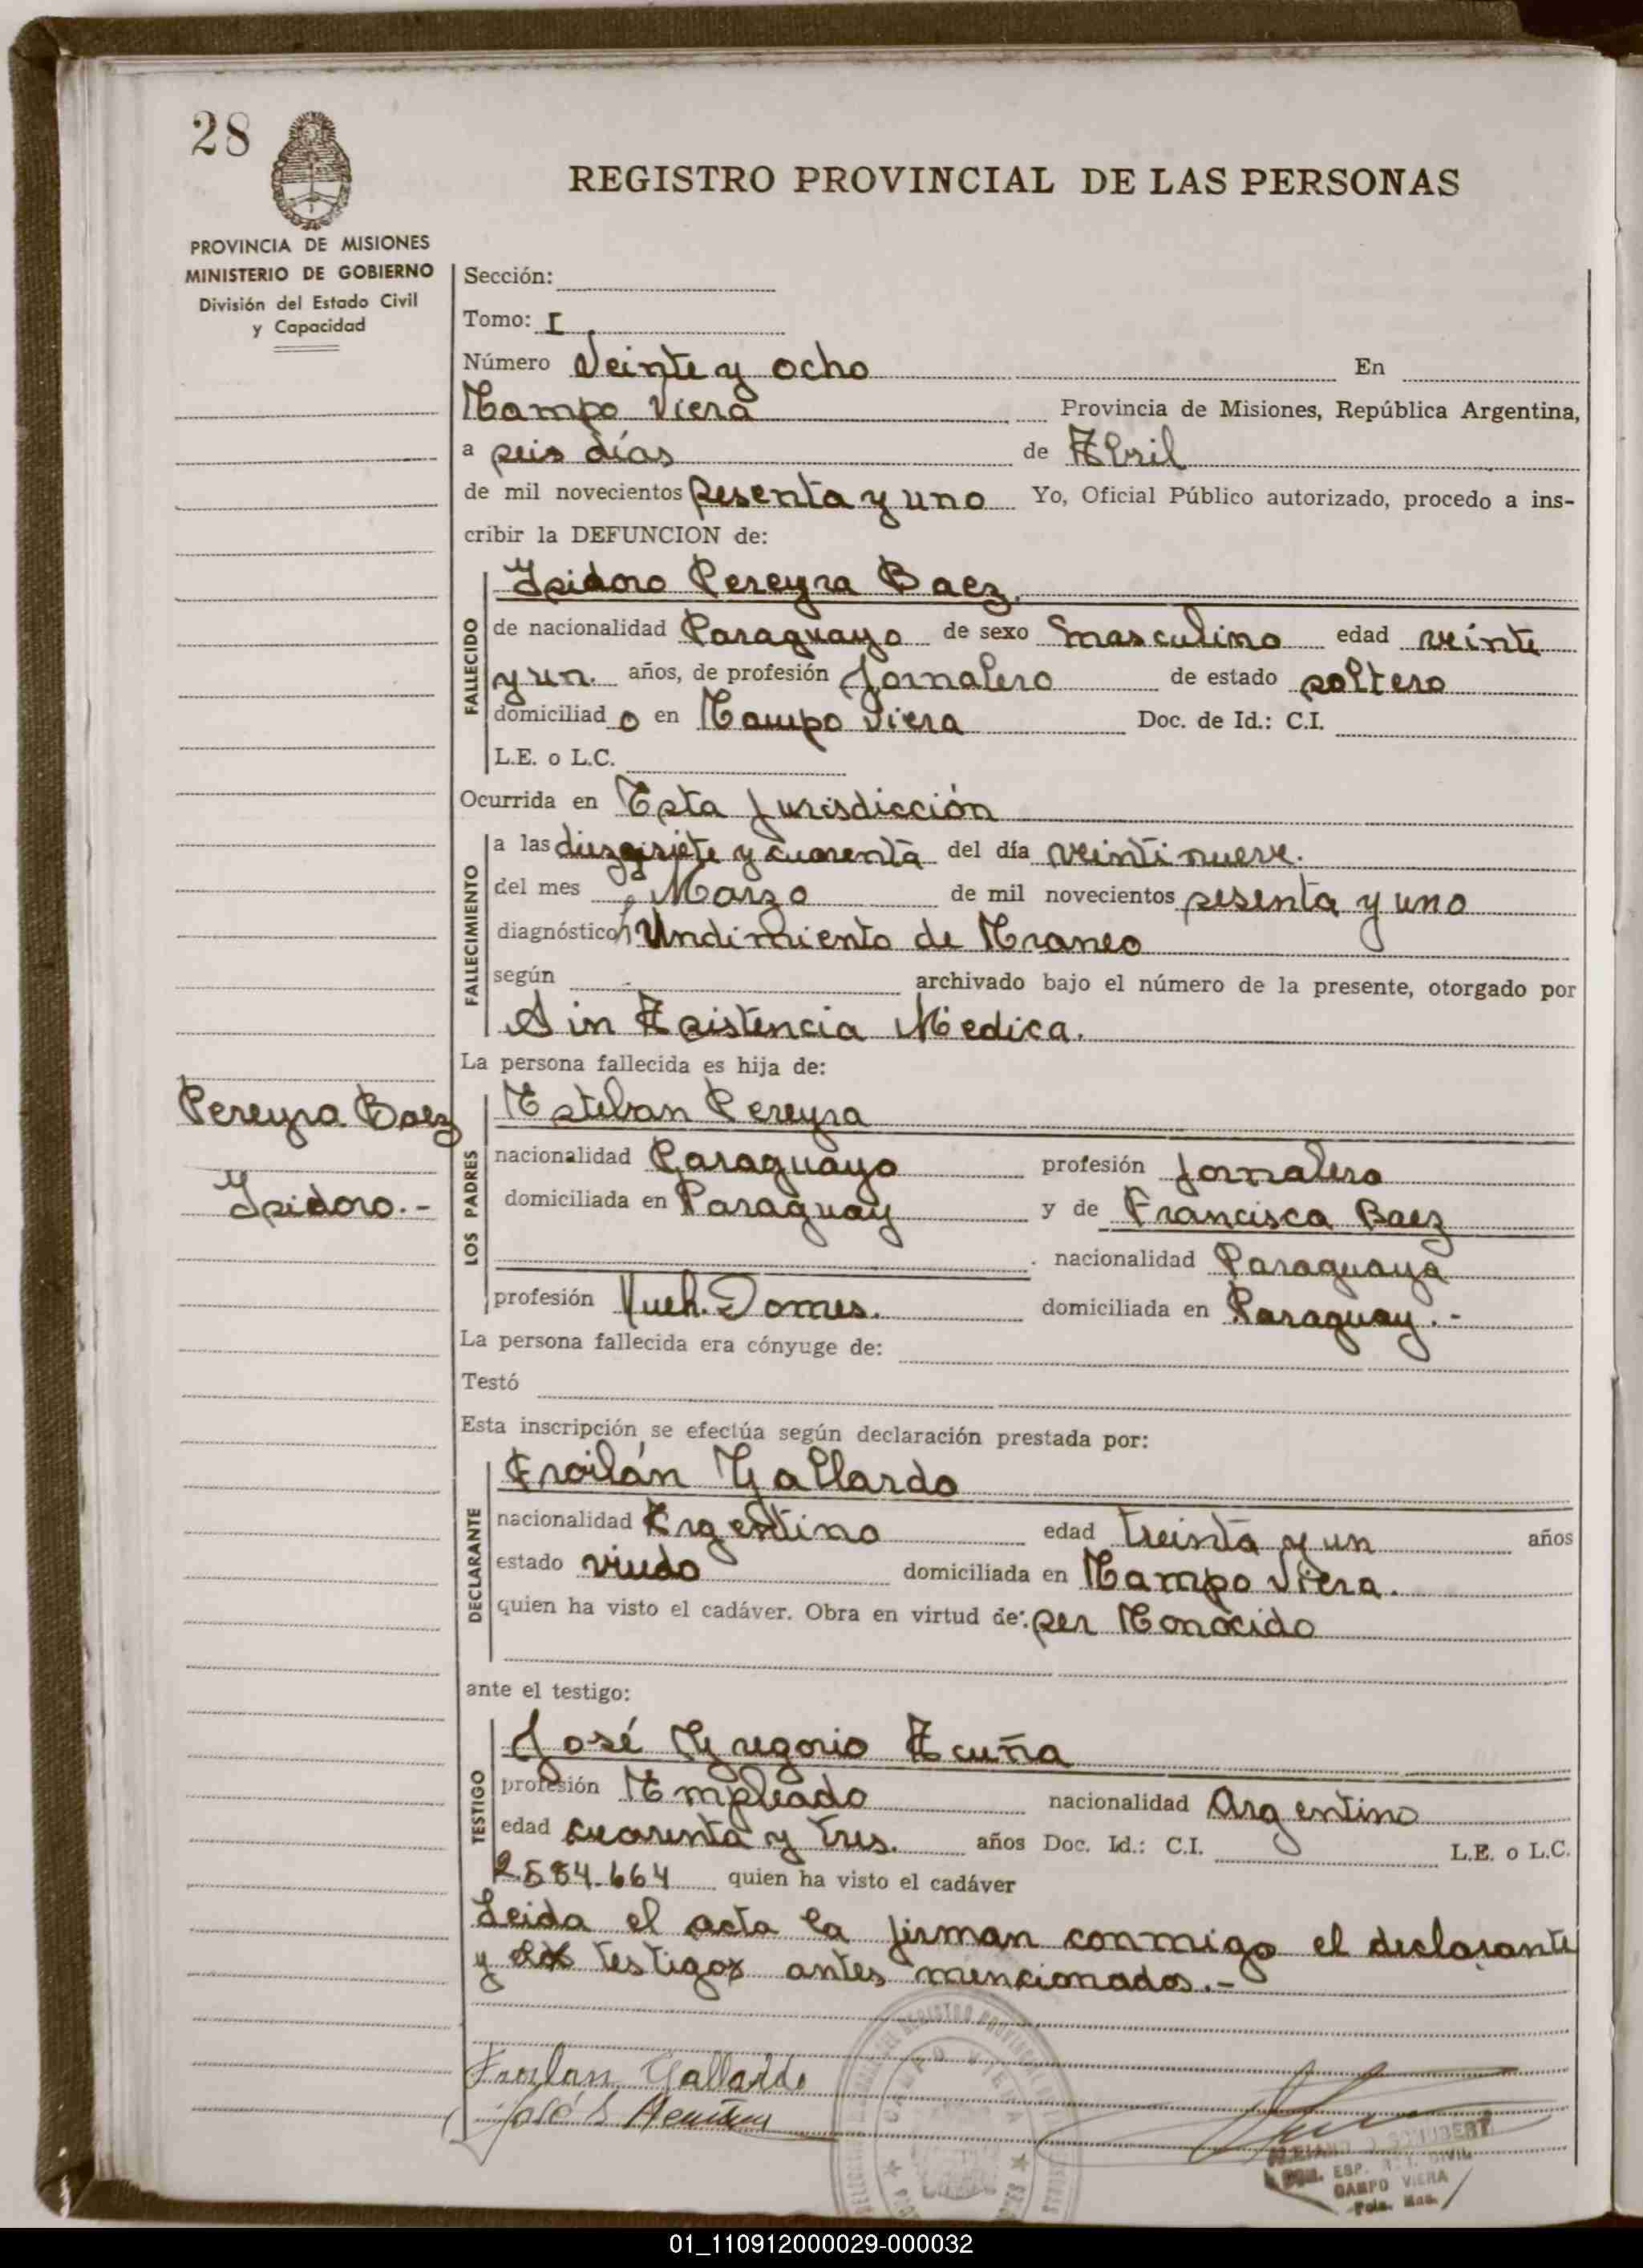 28
REGISTRO PROVINCIAL DE LAS PERSONAS
PROVINCIA DE MISIONES
MINISTERIO DE GOBIERNO
División del Estado Civil
y Capacidad
Sección:
Tomo: I
Número Veinte y ocho En
Campo Viera Provincia de Misiones, República Argentina,
a seis días de Abril
de mil novecientos sesenta y uno Yo, Oficial Público autorizado, procedo a ins-
cribir la DEFUNCION de:
FALLECIDO
Isidoro Pereyra Baez.
de nacionalidad Paraguayo de sexo masculino edad veinte
y un. años, de profesión Jornalero de estado soltero
domiciliad o en Campo Viera Doc. de Id.: C.I.
L.E. o L.C.
Ocurrida en Esta Jurisdicción
FALLECIMIENTO
a las diezgisiete y cuarenta del día veinti nueve.
del mes de Marzo de mil novecientos sesenta y uno
diagnóstico Hundimiento de Craneo
según archivado bajo el número de la presente, otorgado por
Sin Asistencia Medica.
La persona fallecida es hija de:
Pereyra Baez
Isidoro.-
LOS PADRES
Esteban Pereyra
nacionalidad Paraguayo profesión Jornalero
domiciliada en Paraguay y de Francisca Baez
nacionalidad Paraguaya
profesión Queh. Domes. domiciliada en Paraguay.-
La persona fallecida era cónyuge de:
Testó
Esta inscripción se efectúa según declaración prestada por:
DECLARANTE
Froilán Gallardo
nacionalidad Argentino edad treinta y un años
estado viudo domiciliada en Campo Viera.
quien ha visto el cadáver. Obra en virtud de: ser Conocido
ante el testigo:
TESTIGO
José Gregorio Acuña
profesión Empleado nacionalidad Argentino
edad cuarenta y tres. años Doc. Id.: C.I. L.E. o L.C.
2.584.664 quien ha visto el cadáver
Leida el acta la firman conmigo el declarante
y testigos antes mencionados.-
Froilan Gallardo
José
CAMPO VIERA
SCHUBERT
ESP. CIVIL
CAMPO VIERA
01_110912000029-000032